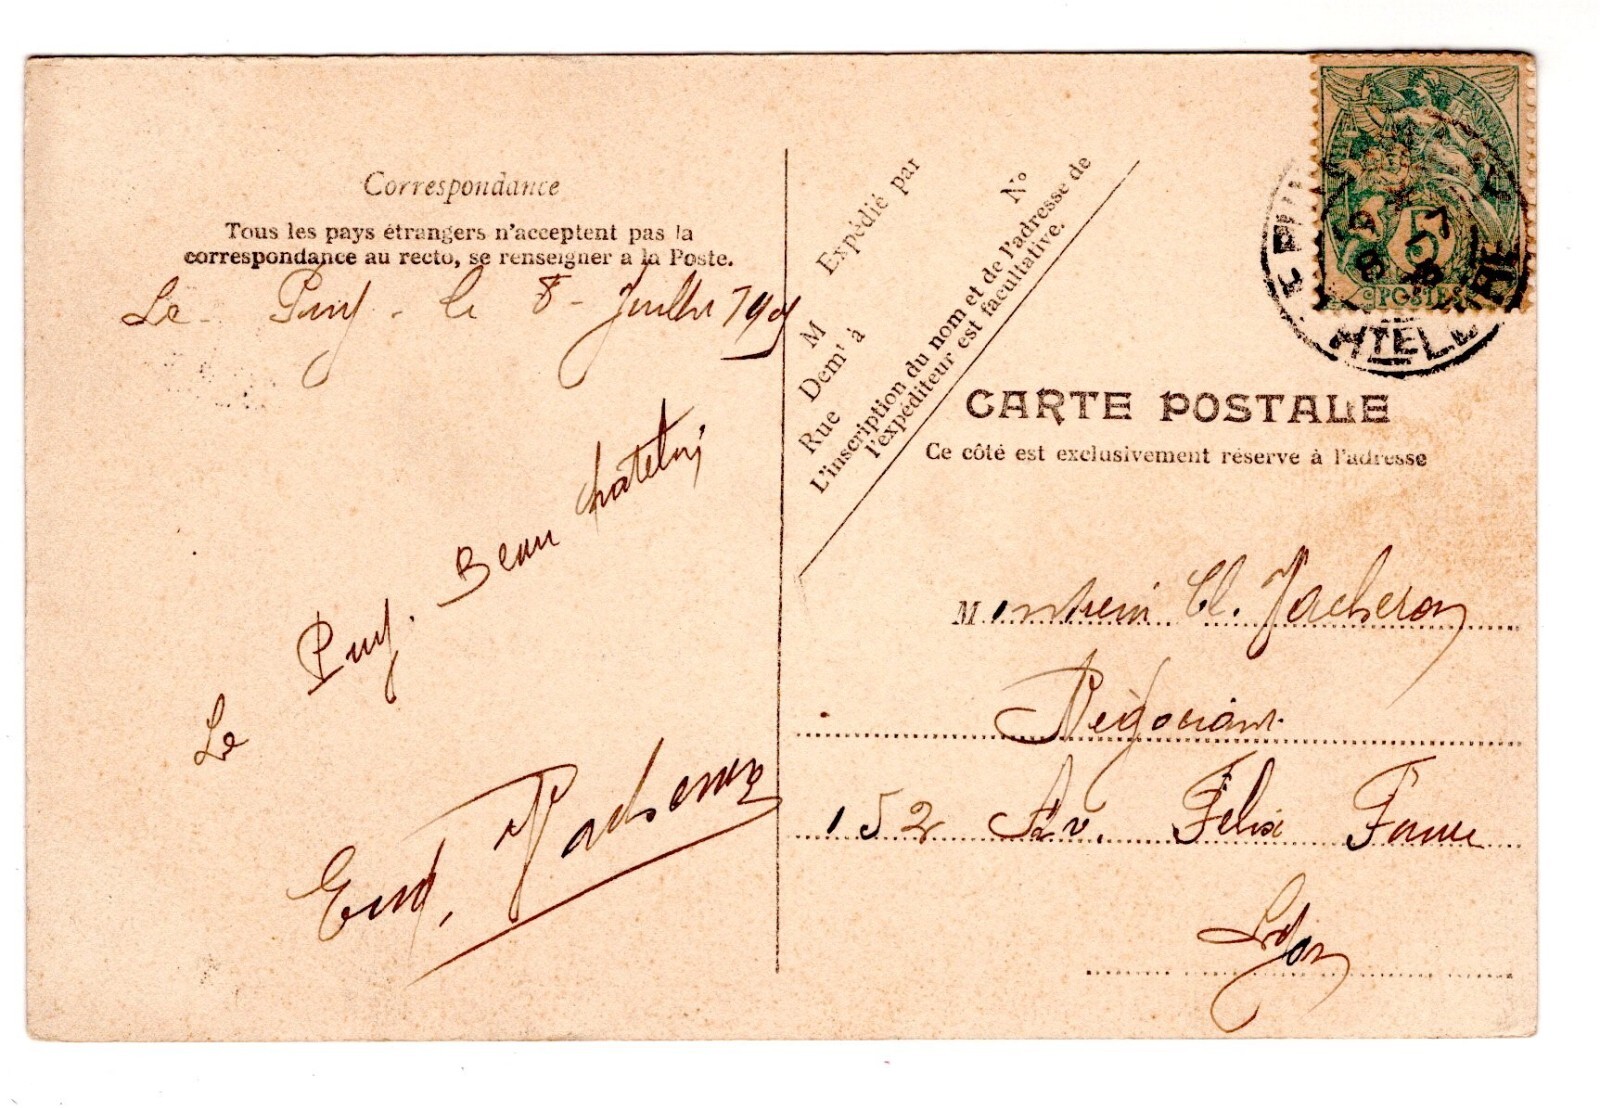 Correspondance
Tous les pays étrangers n'acceptent pas la
correspondance au recto, se renseigner a la Poste.
Le Puy - le 8 - Juillet 190
Le Puy. Beau
Eug. Vacheron
Expédié par
M N°
Demt à
Rue
L'inscription du nom et de l'adresse de
l'expéditeur est facultative.
5
POSTES
CARTE POSTALE
Ce côté est exclusivement réserve à l'adresse
Monsieur Cl. Vacheron
Négociant
152 Av. Félix Faure
Lyon